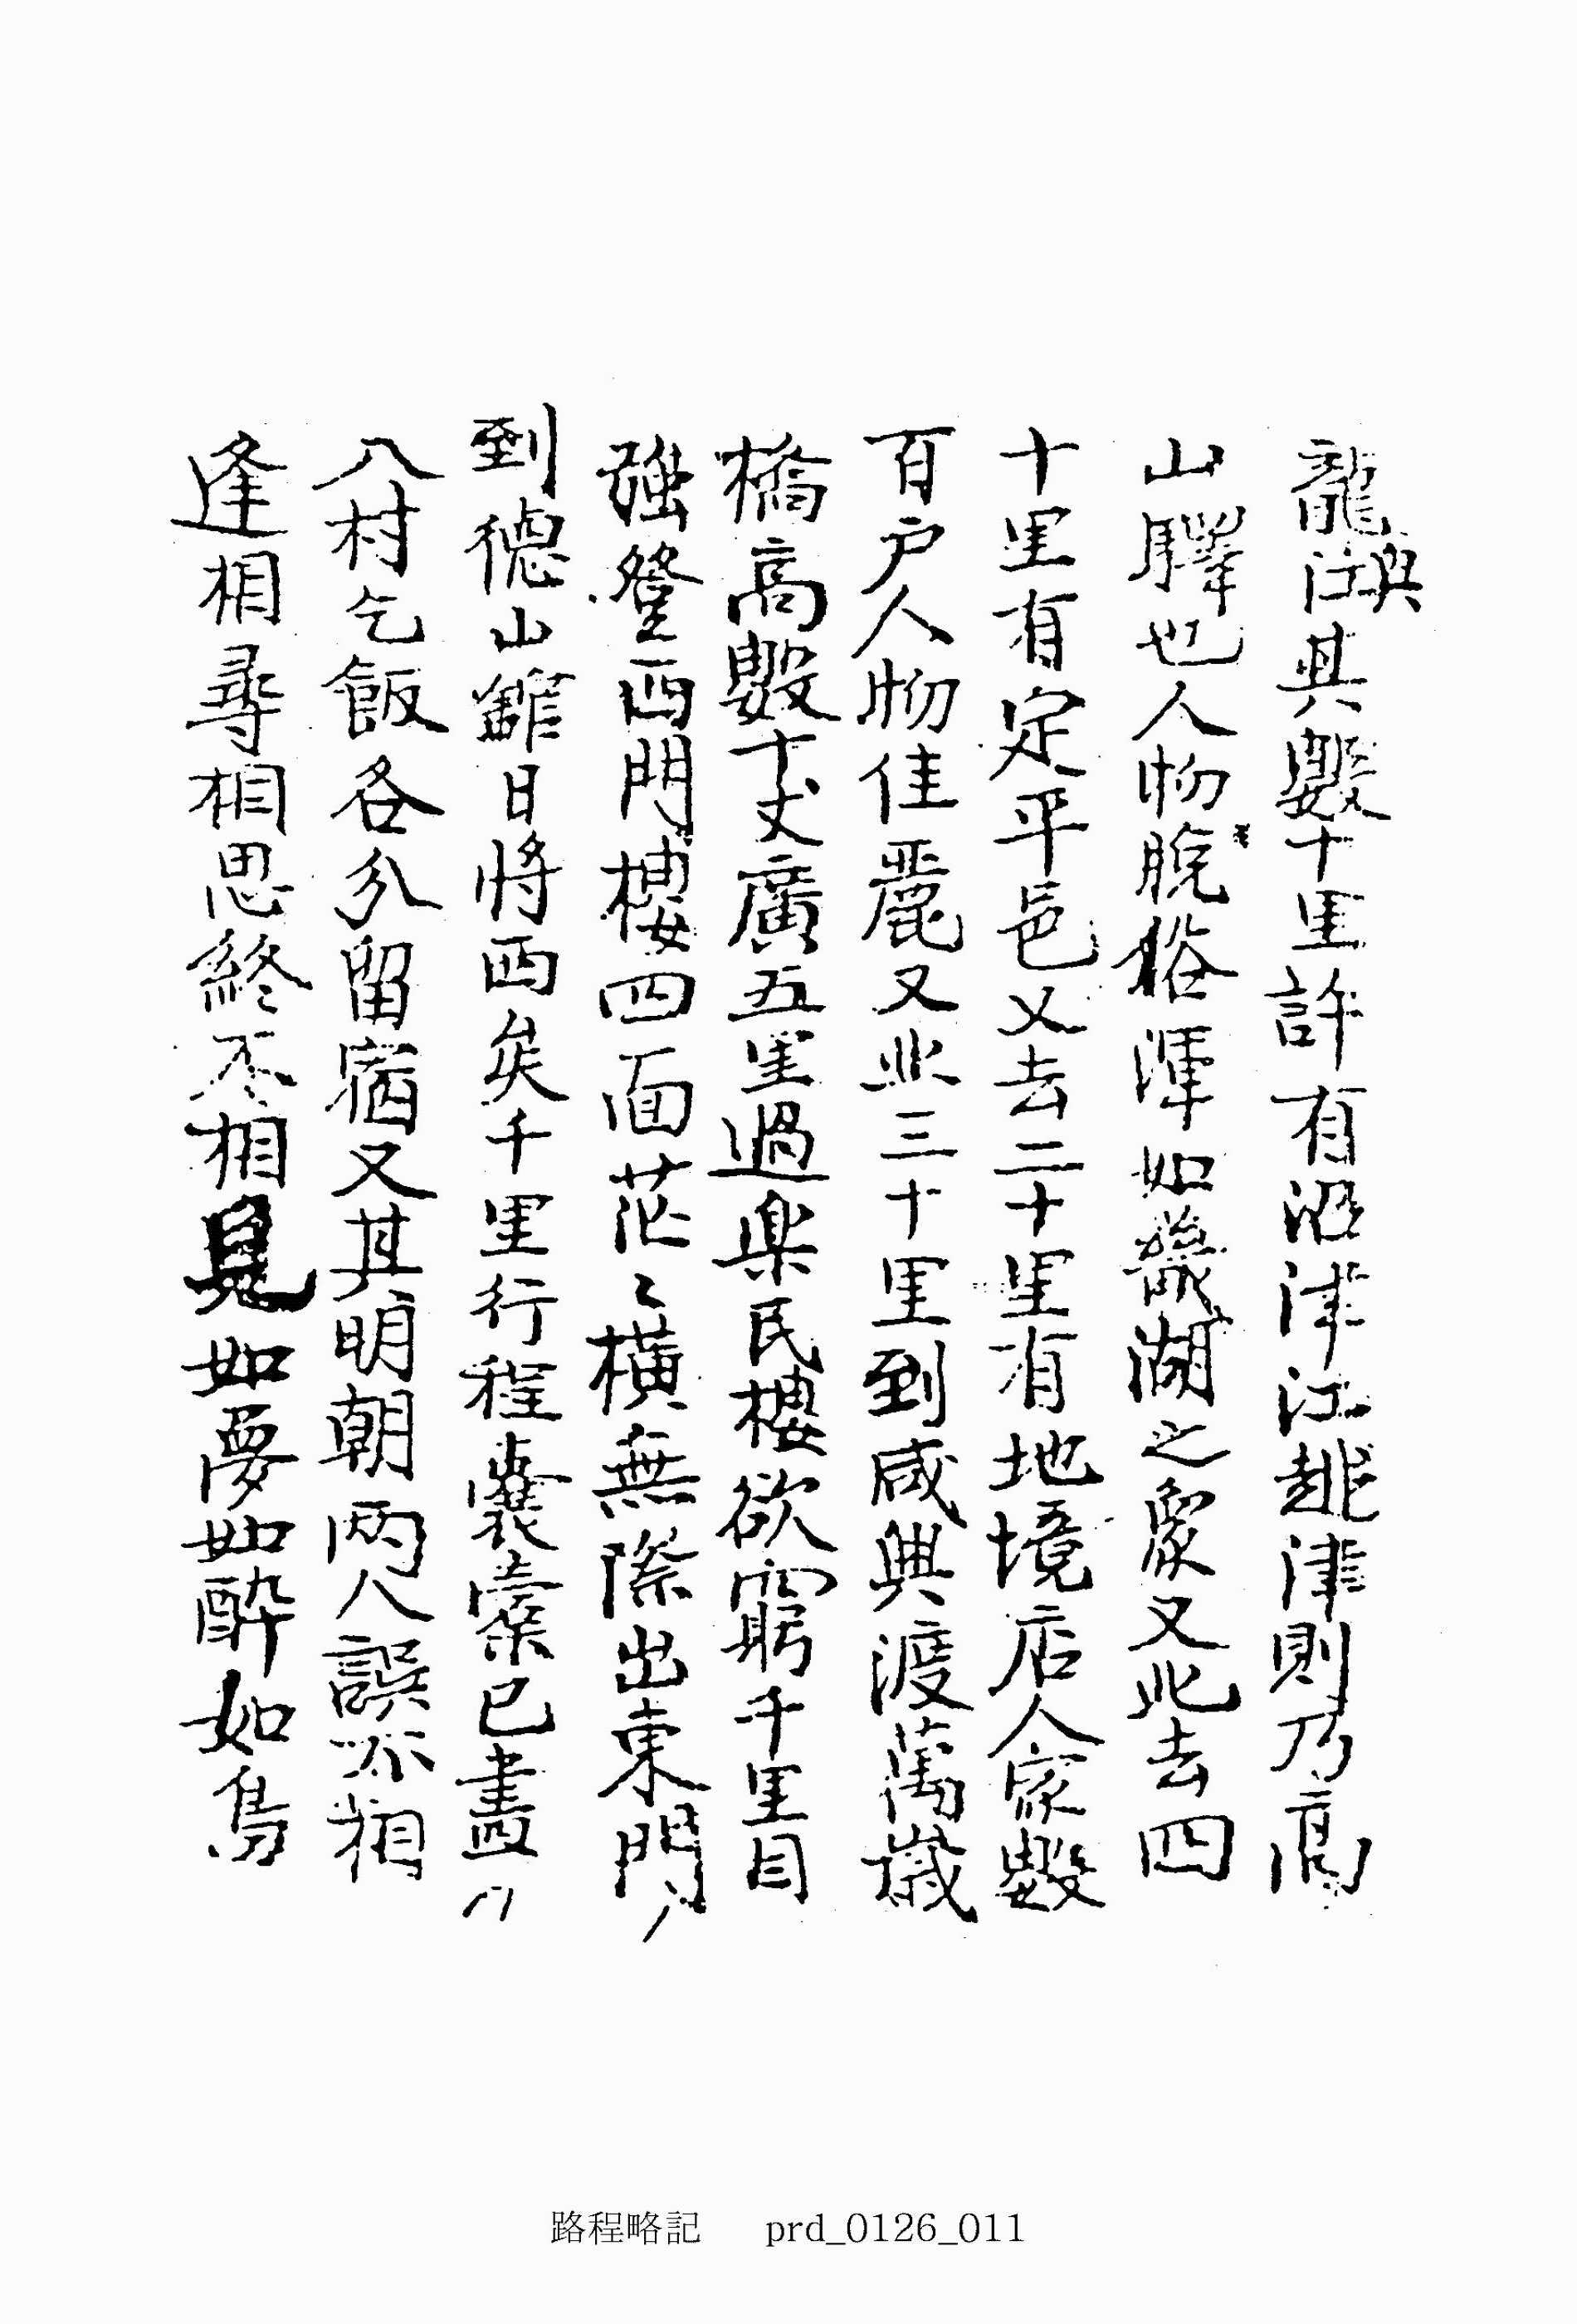 龍江與其數十里許有沿津江越津則乃高
山驛也人物脫俗渾如畿湖之象又此去四
十里有定平邑又去二十里有地境店人家數
百戶人物佳麗又此三十里到咸興渡萬歲
橋高數十丈廣五里過樂民樓欲窮千里目
强登西門樓四面茫〻橫無際出東門
到德山館日將西矣千里行程囊橐已盡
入村乞飯各分留宿又其明朝兩人誤不相
逢相尋相思終不相見如夢如醉如鳥
路程略記 prd_0126_011